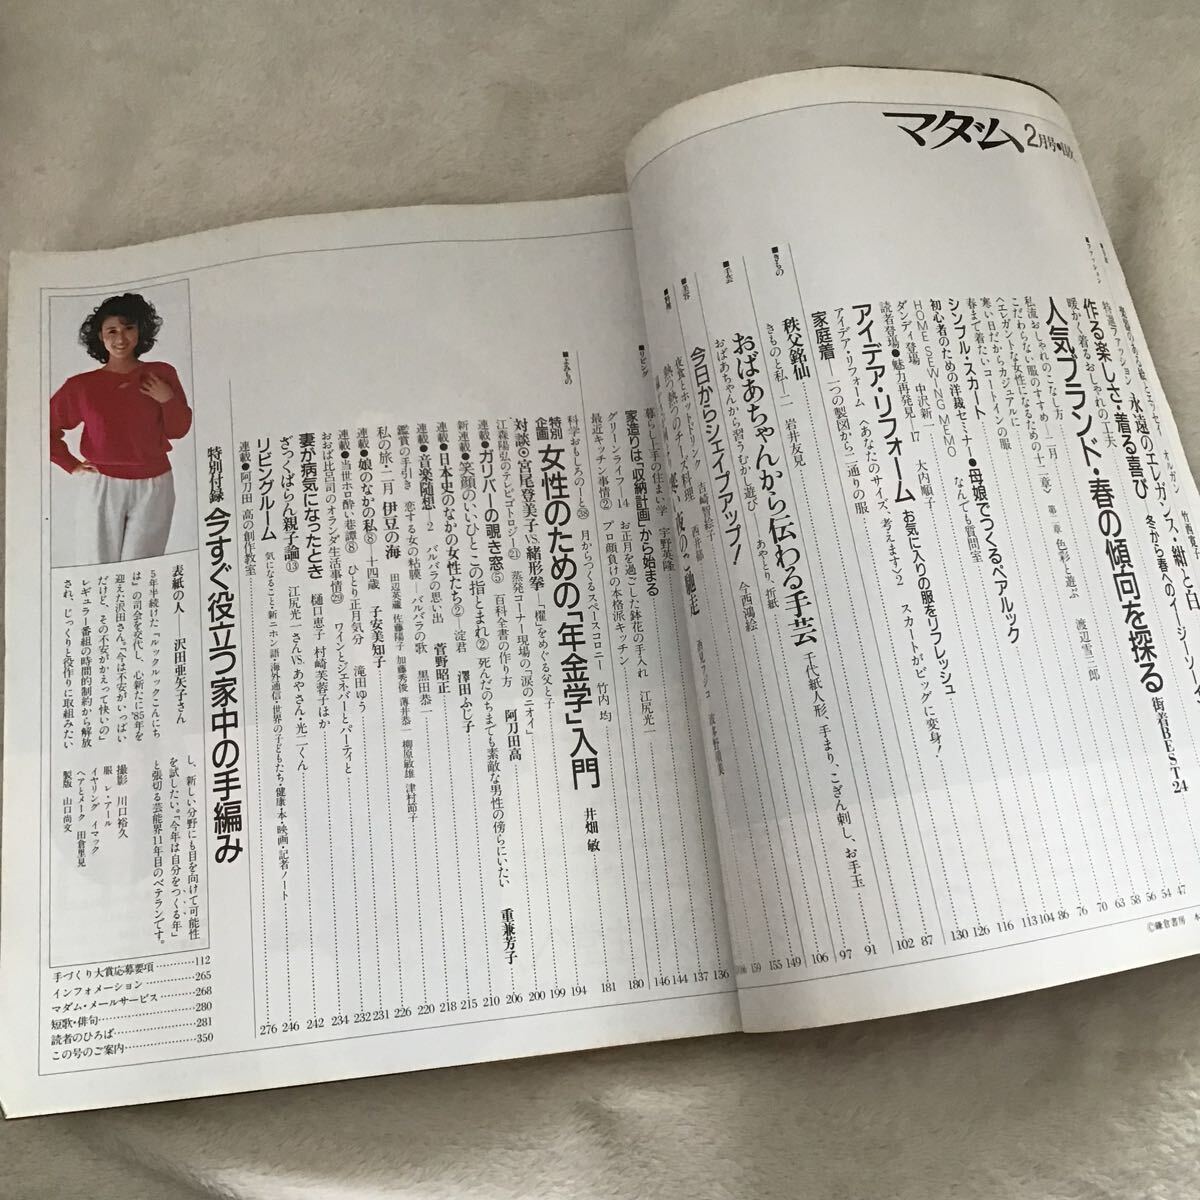 マダム 2月号
■ファッション
作る楽しさ・着る喜び 冬から春へのイージーソーイング
暖かく着るおしゃれの工夫
特選ファッション 永遠のエレガンス・紺と白
人気ブランド・春の傾向を探る 街着BEST24
私流おしゃれのこなし方―二月 渡辺雪三郎
こだわらない服のすすめ
〈エレガントな女性になるための十二章〉 第二章 色彩と遊ぶ
寒い日だからカジュアルに
春まで着たいコートインの服
シンプル・スカート―母娘でつくるペアルック
初心者のための洋裁セミナー● なんでも質問室
HOME SEWING MEMO
ダンディ登場 中沢新一
読者登場●魅力再発見―17 大内順子
アイデア・リフォーム お気に入りの服をリフレッシュ
アイデア・リフォーム〈あなたのサイズ、考えます〉2 スカートがビッグに変身!
家庭着―一つの製図から二通りの服
■きもの
秩父銘仙
きものと私―二 岩井友見
■手芸
おばあちゃんから伝わる手芸 千代紙人形、手まり、こぎん刺し、お手玉
おばあちゃんから習うむかし遊び あやとり、折紙
■美容
今日からシェイプアップ! 今西鴻絵
■料理
夜食とホットドリンク 吉崎智絵子
■リビング
暮らし上手の住まい学 宇野英隆
家造りは「収納計画」から始まる
グリーンライフ 14 お正月を過ごした鉢花の手入れ 江尻光一
最近キッチン事情② プロ顔負けの本格派キッチン
■よみもの
科学おもしろのーと㊳ 月からつくるスペースコロニー 竹内 均
特別企画 女性のための「年金学」入門 井畑 敏
対談◎宮尾登美子VS.緒形拳 「櫂」をめぐる父と子
江森陽弘のテレビゴトロジー㉑ 蒸発コーナー現場の“涙のニオイ”
連載●ガリバーの覗き窓⑤ 百科全書の作り方 阿刀田高
新連載●笑顔のいいひとこの指とまれ② 死んだのちまでも素敵な男性の傍らにいたい 重兼芳子
連載●日本史のなかの女性たち② 淀君 澤田ふじ子
連載●音楽随想―2 ババラの思い出 菅野昭正
鑑賞の手引き 恋する女の粘膜 バルバラの歌 黒田恭一
私の旅・二月 伊豆の海 田辺英蔵 佐藤陽子 加藤秀俊 薄井恭一 柳原敏雄 津村節子
連載●娘のなかの私⑧―十四歳 子安美知子
連載●当世ホロ酔い巷譚⑧ ひとり正月気分 滝田ゆう
おおば比呂司のオランダ生活事情㉙ ワインとジェネバーとパーティと
妻が病気になったとき 樋口恵子 村崎芙蓉子ほか
ざっくばらん親子論⑬ 江尻光一さんVS.あやさん・光二くん
リビングルーム 気になること・新ニホン語・海外通信・世界の子どもたち・健康・本・映画・記者ノート
連載●阿刀田 高の創作教室
47
54
56
58
63
70
76
86
104
113
116
126
130
87
102
91
97
106
149
155
159
136
137
144
146
180
181
194
199
200
206
210
215
218
220
226
231
232
234
242
246
276
特別付録 今すぐ役立つ家中の手編み
表紙の人――沢田亜矢子さん
5年半続けた『ルックルックこんにち
は』の司会を交代し、心新たに'85年を
迎えた沢田さん。「今は不安がいっぱい
だけど、その不安がかえって快いの」
レギュラー番組の時間的制約から解放
され、じっくりと役作りに取組みたい
し、新しい分野にも目を向けて可能性
を試したい。「今年は自分をつくる年」
と張切る芸能界11年目のベテランです。
撮影 川口裕久
服 レ・アール
イヤリング イマック
ヘアとメーク 田倉里見
製版 山口尚文
手づくり大賞応募要項…………112
インフォメーション……………265
マダム・メールサービス………268
短歌・俳句………………………280
読者のひろば……………………281
この号のご案内…………………350
©鎌倉書房